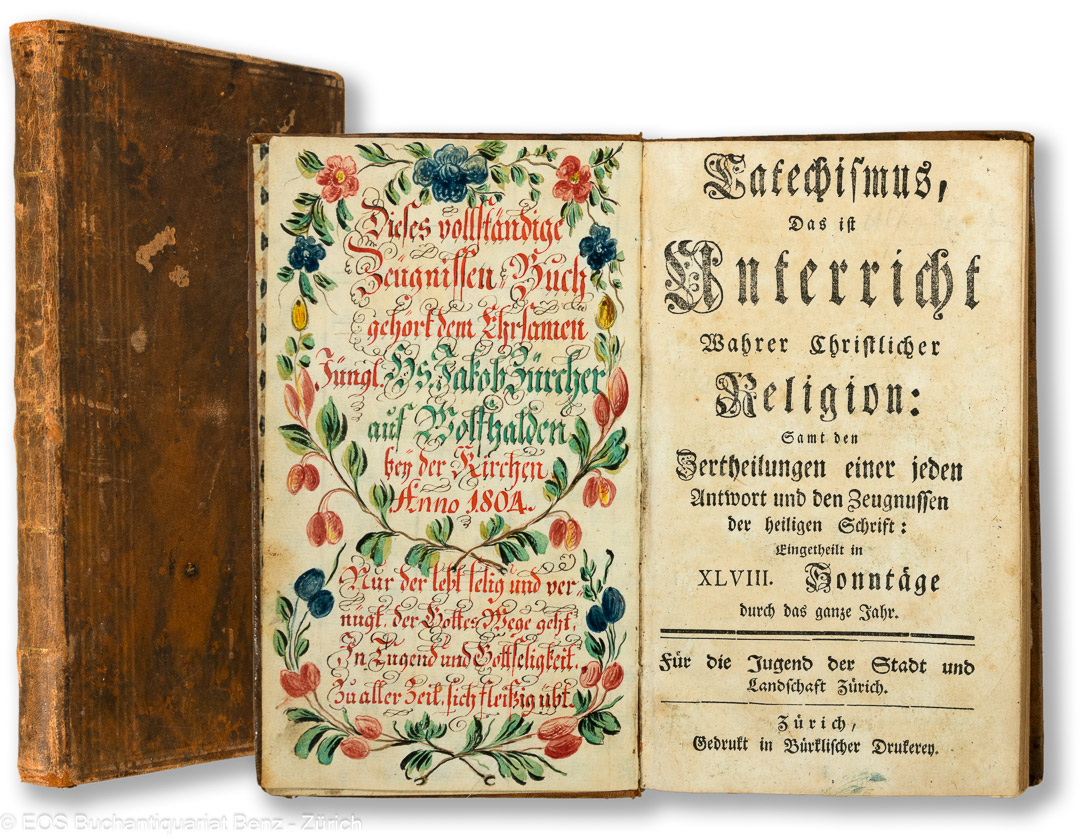 Dieses vollständige
Zeügnissen-Buch
gehört dem Ehrsamen
Jüngl. Hs. Jakob Zürcher
auf Wolfhalden
bey der Kirchen
Anno 1804.
Nur der lebt selig und ver-
nügt, der Gottes Wege geht,
In Tugend und Gottseligkeit.
Zu aller Zeit, sich fleißig übt.
Catechismus,
Das ist
Unterricht
Wahrer Christlicher
Religion:
Samt den
Zertheilungen einer jeden
Antwort und den Zeugnussen
der heiligen Schrift:
Eingetheilt in
XLVIII. Sonntäge
durch das ganze Jahr.
Für die Jugend der Stadt und
Landschaft Zürich.
Zürich,
Gedrukt in Bürklischer Drukerey.
© EOS Buchantiquariat Benz - Zürich